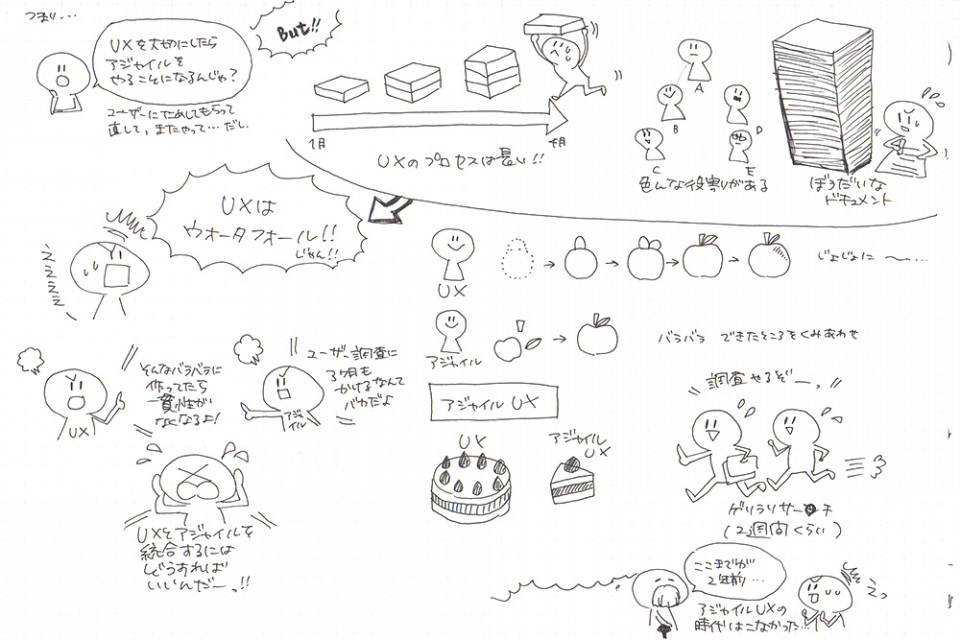 つまり...
UXを大切にしたら
アジャイルを
やることになるんじゃ?
ユーザーにためしてもらって
直して、またやって...だし、
But!!
1月
4月
UXのプロセスは長い!!
A
B
D
C
E
色んな役割りがある
ぼうだいな
ドキュメント
UXは
ウォータフォール!!
じゃん!!
ええええ
UX
じょじょに 〜〜...
アジャイル
バラバラ できたところをくみあわせ
そんなバラバラに
作ってたら
一貫性が
なくなるよ!
UX
ユーザー調査に
3ヶ月も
かけるなんて
バカだよ
アジャイル
UXとアジャイルを
統合するには
どうすれば
いいんだーっ!!
アジャイル UX
UX
アジャイル
UX
調査やるぞーっ
ゲリラリサーチ
(2週間くらい)
ここまでが
2年前...
アジャイルUXの
時代はこなかった...
えっ